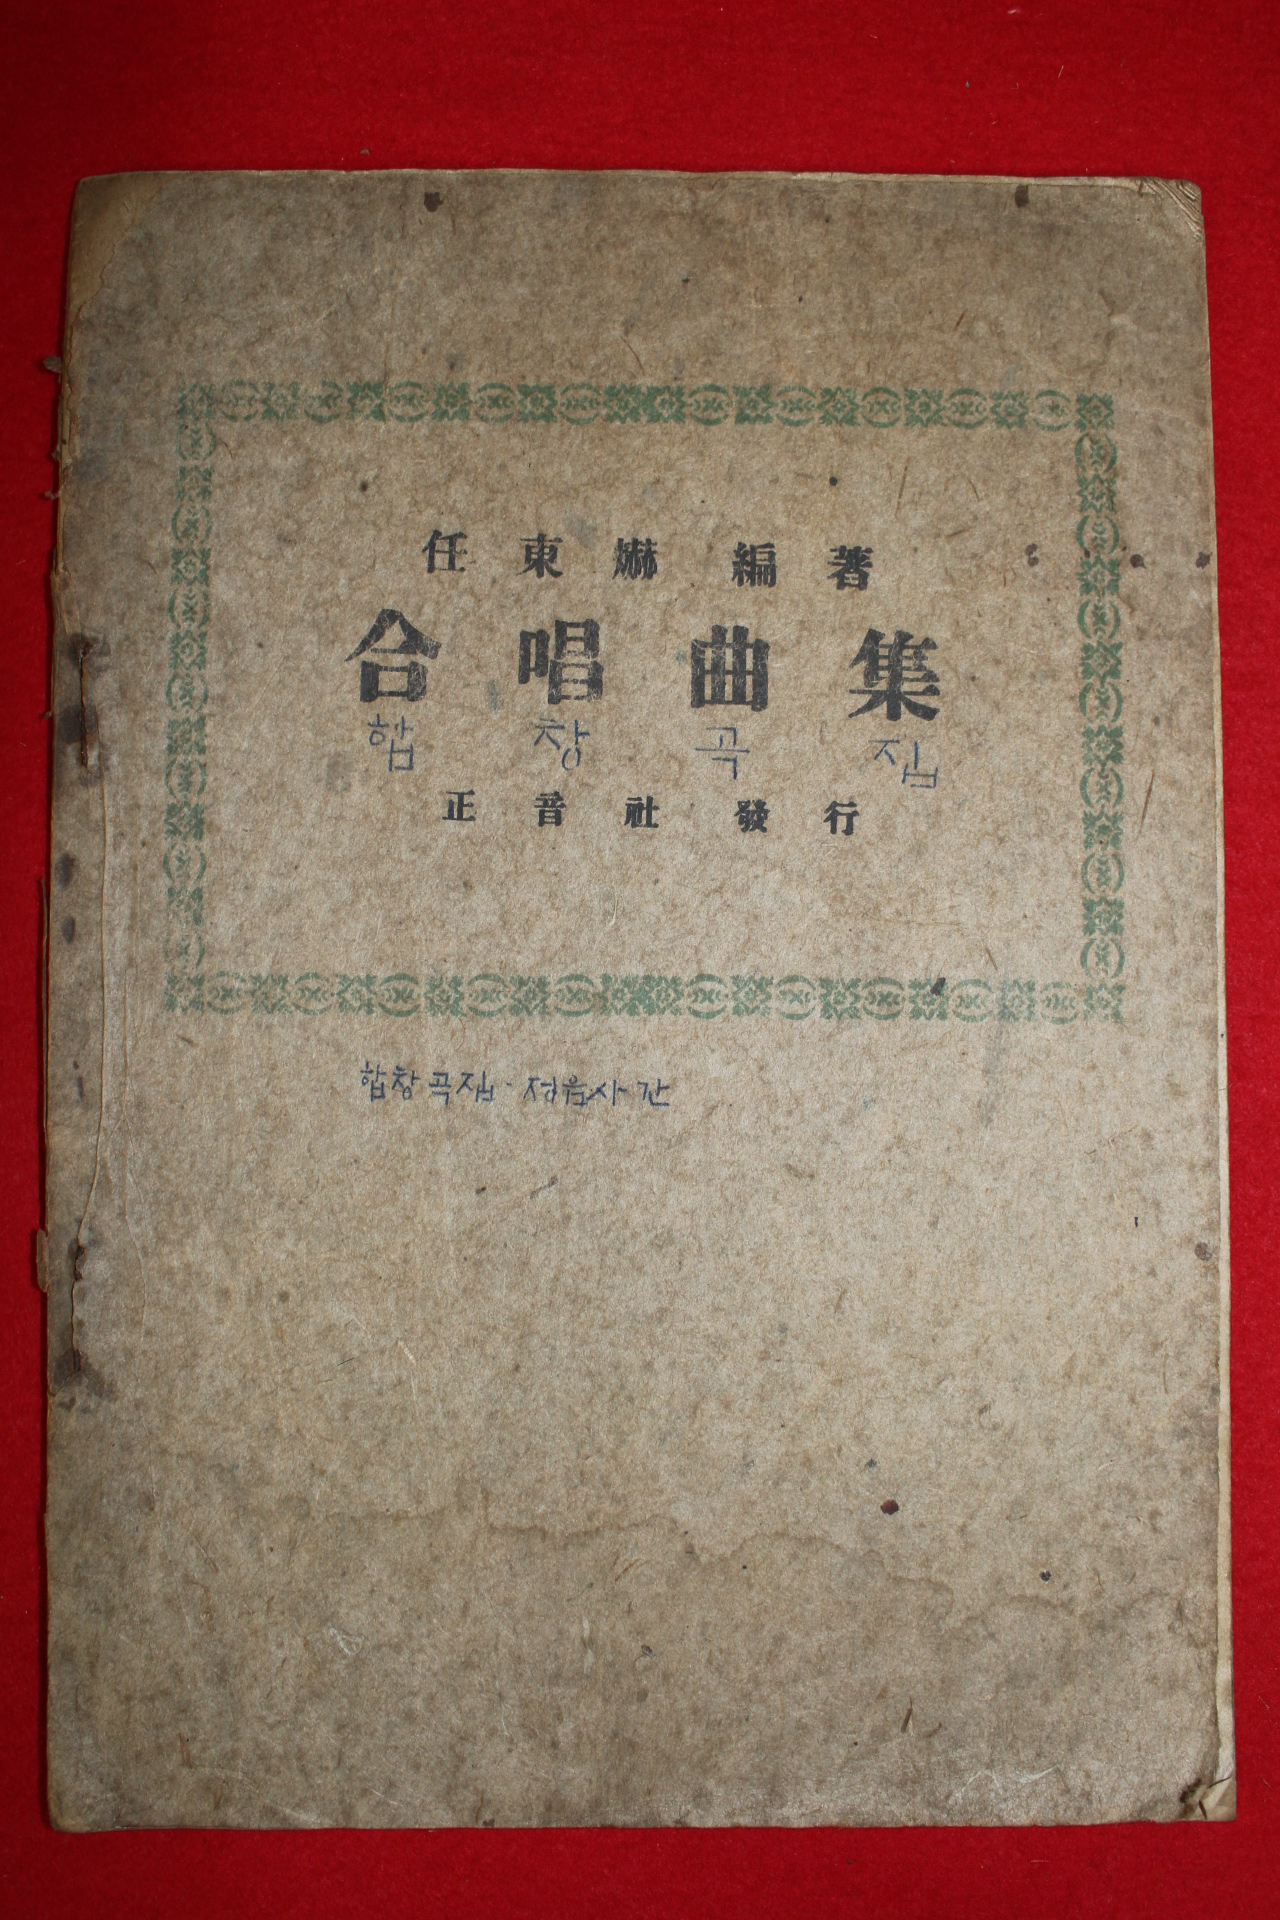 任東爀 編著
合唱曲集
합창곡집
正音社 發行
합창곡집·정음사간